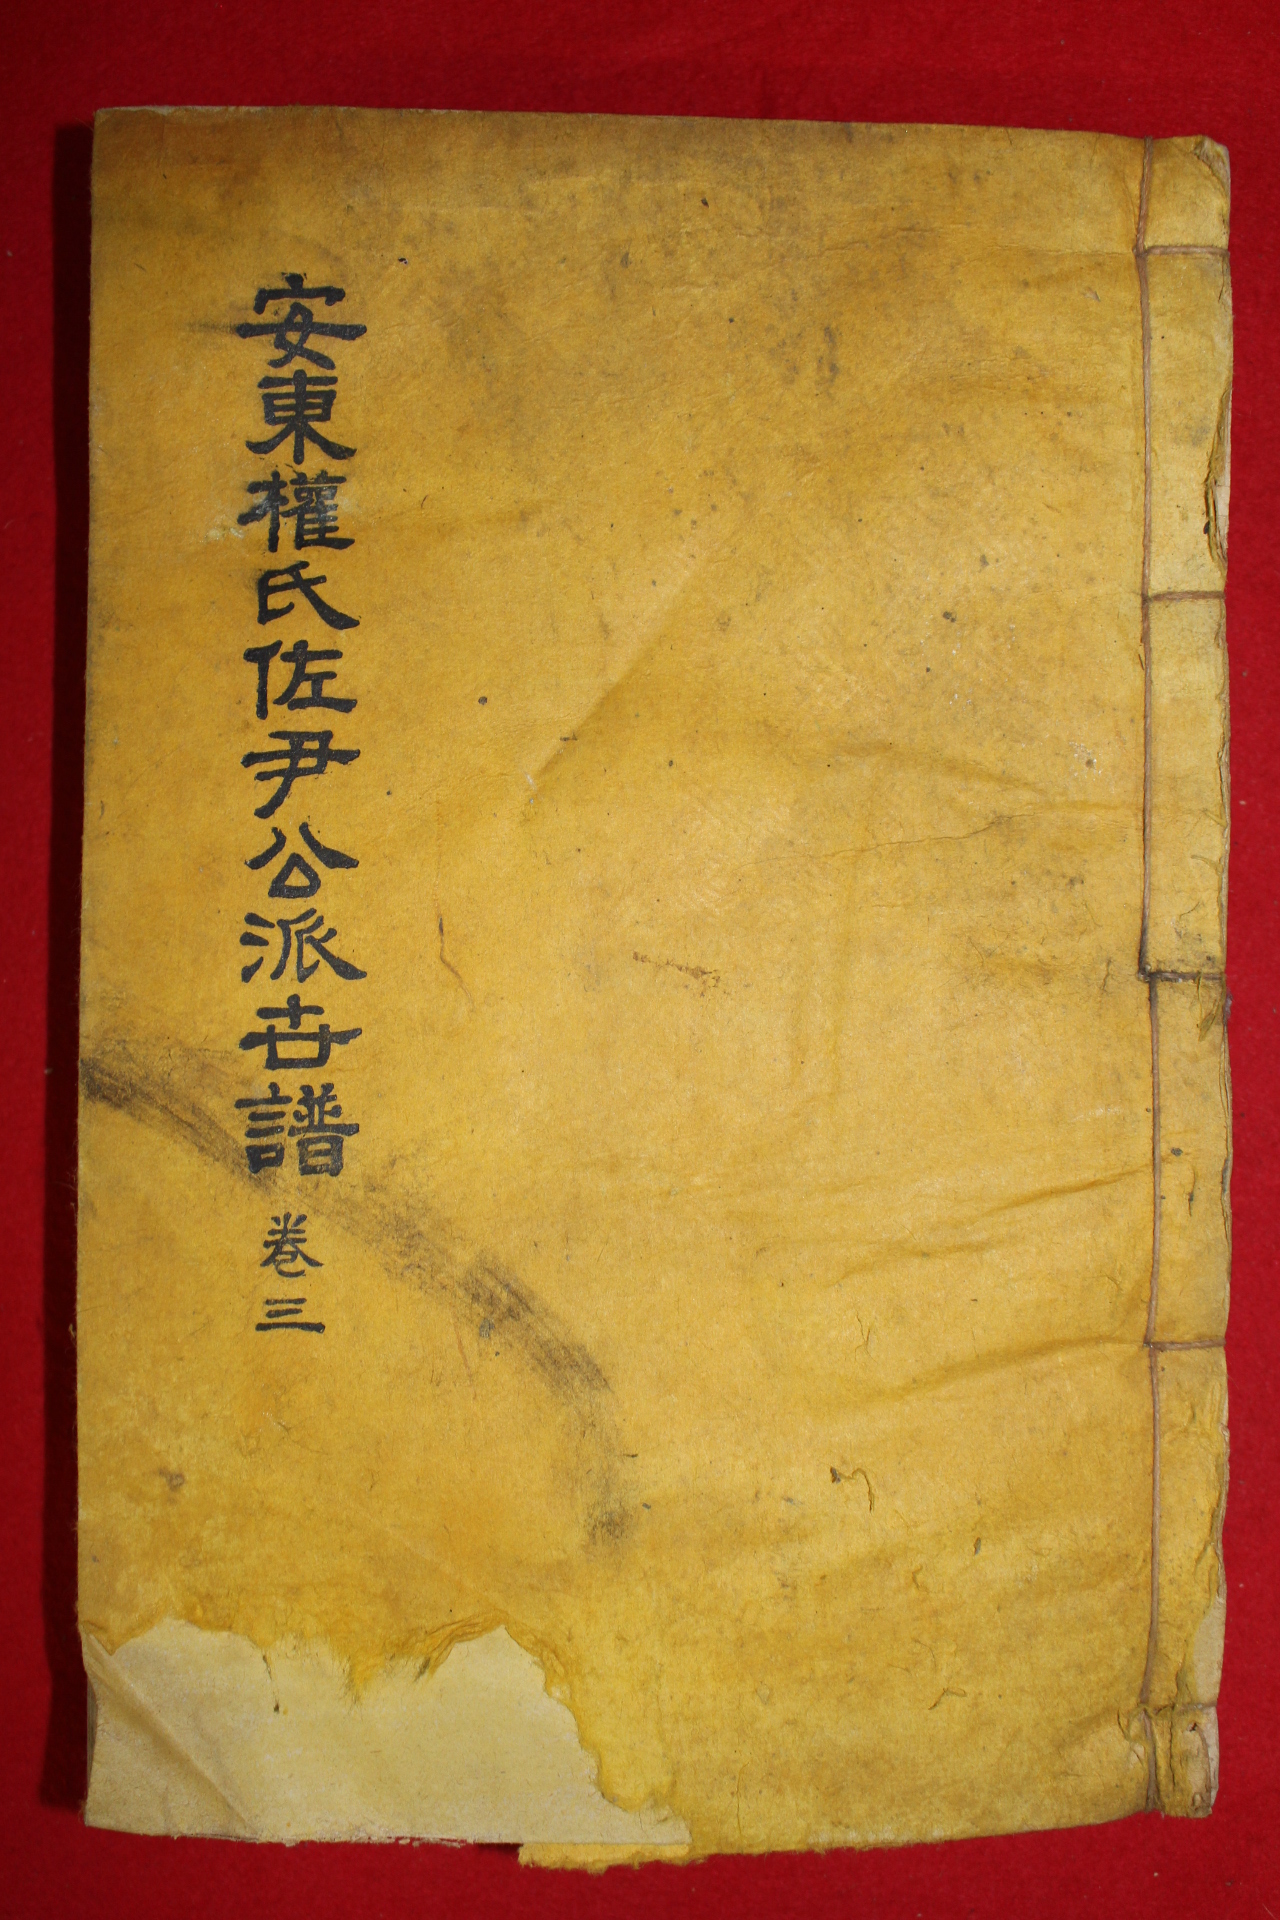 安東權氏佐尹公派世譜 卷三